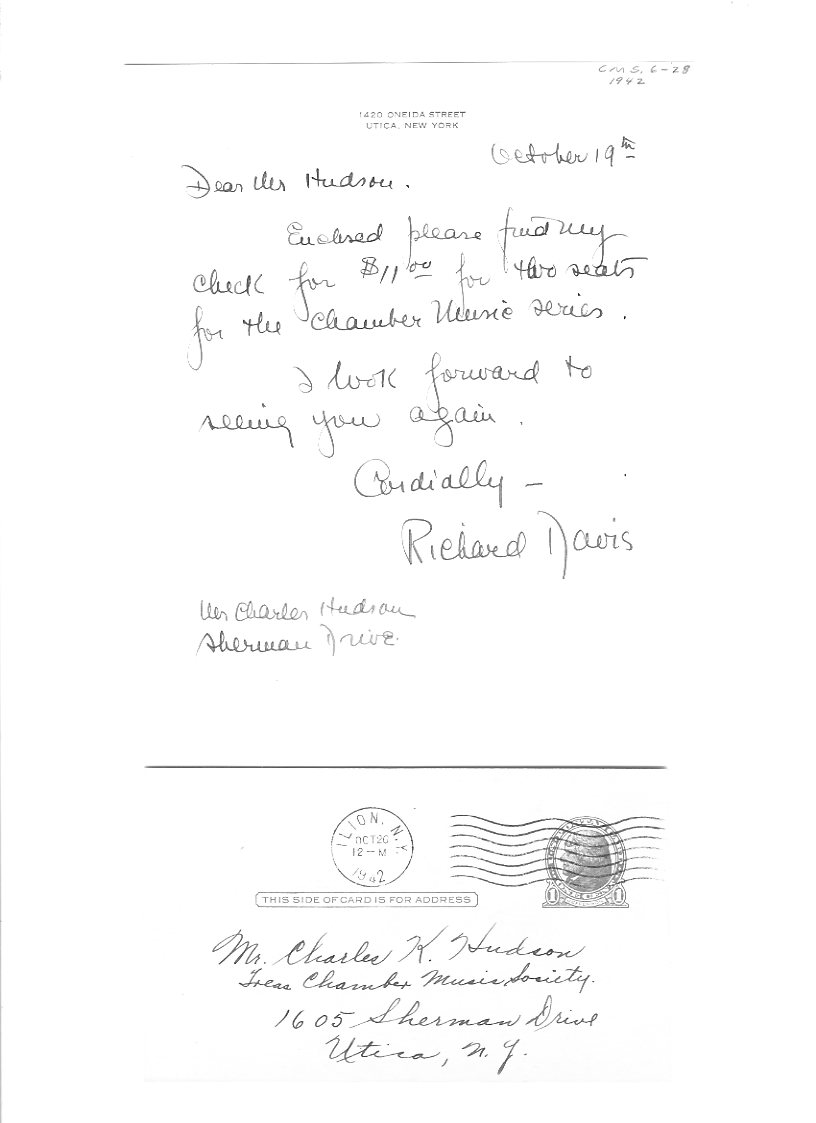 C M S. 6-28
1942
1420 ONEIDA STREET
UTICA, NEW YORK
October 19th
Dear Mr Hudson.
Enclosed please find my
check for $11.00 for two seats
for the Chamber Music series.
I look forward to
seeing you again.
Cordially -
Richard Davis
Mr Charles Hudson
Sherman Drive.
ILION, N.Y.
OCT 20
12-M
1942
THIS SIDE OF CARD IS FOR ADDRESS
1 1
Mr. Charles K. Hudson
Treas Chamber Music Society.
1605 Sherman Drive
Utica, N.Y.